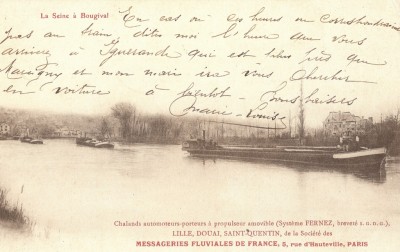 La Seine à Bougival
En cas ou ces heures en correspondraient
pas au train dites moi l'heure que vous
arrivez à Iguerande qui est plus près que
Marcigny et mon mari ira vous chercher
en voiture à bientôt - bons baisers
Marie-Louise
Chalands automoteurs-porteurs à propulseur amovible (Système FERNEZ, breveté s.G.D.G.),
LILLE, DOUAI, SAINT-QUENTIN, de la Société des
MESSAGERIES FLUVIALES DE FRANCE, 5, rue d'Hauteville, PARIS